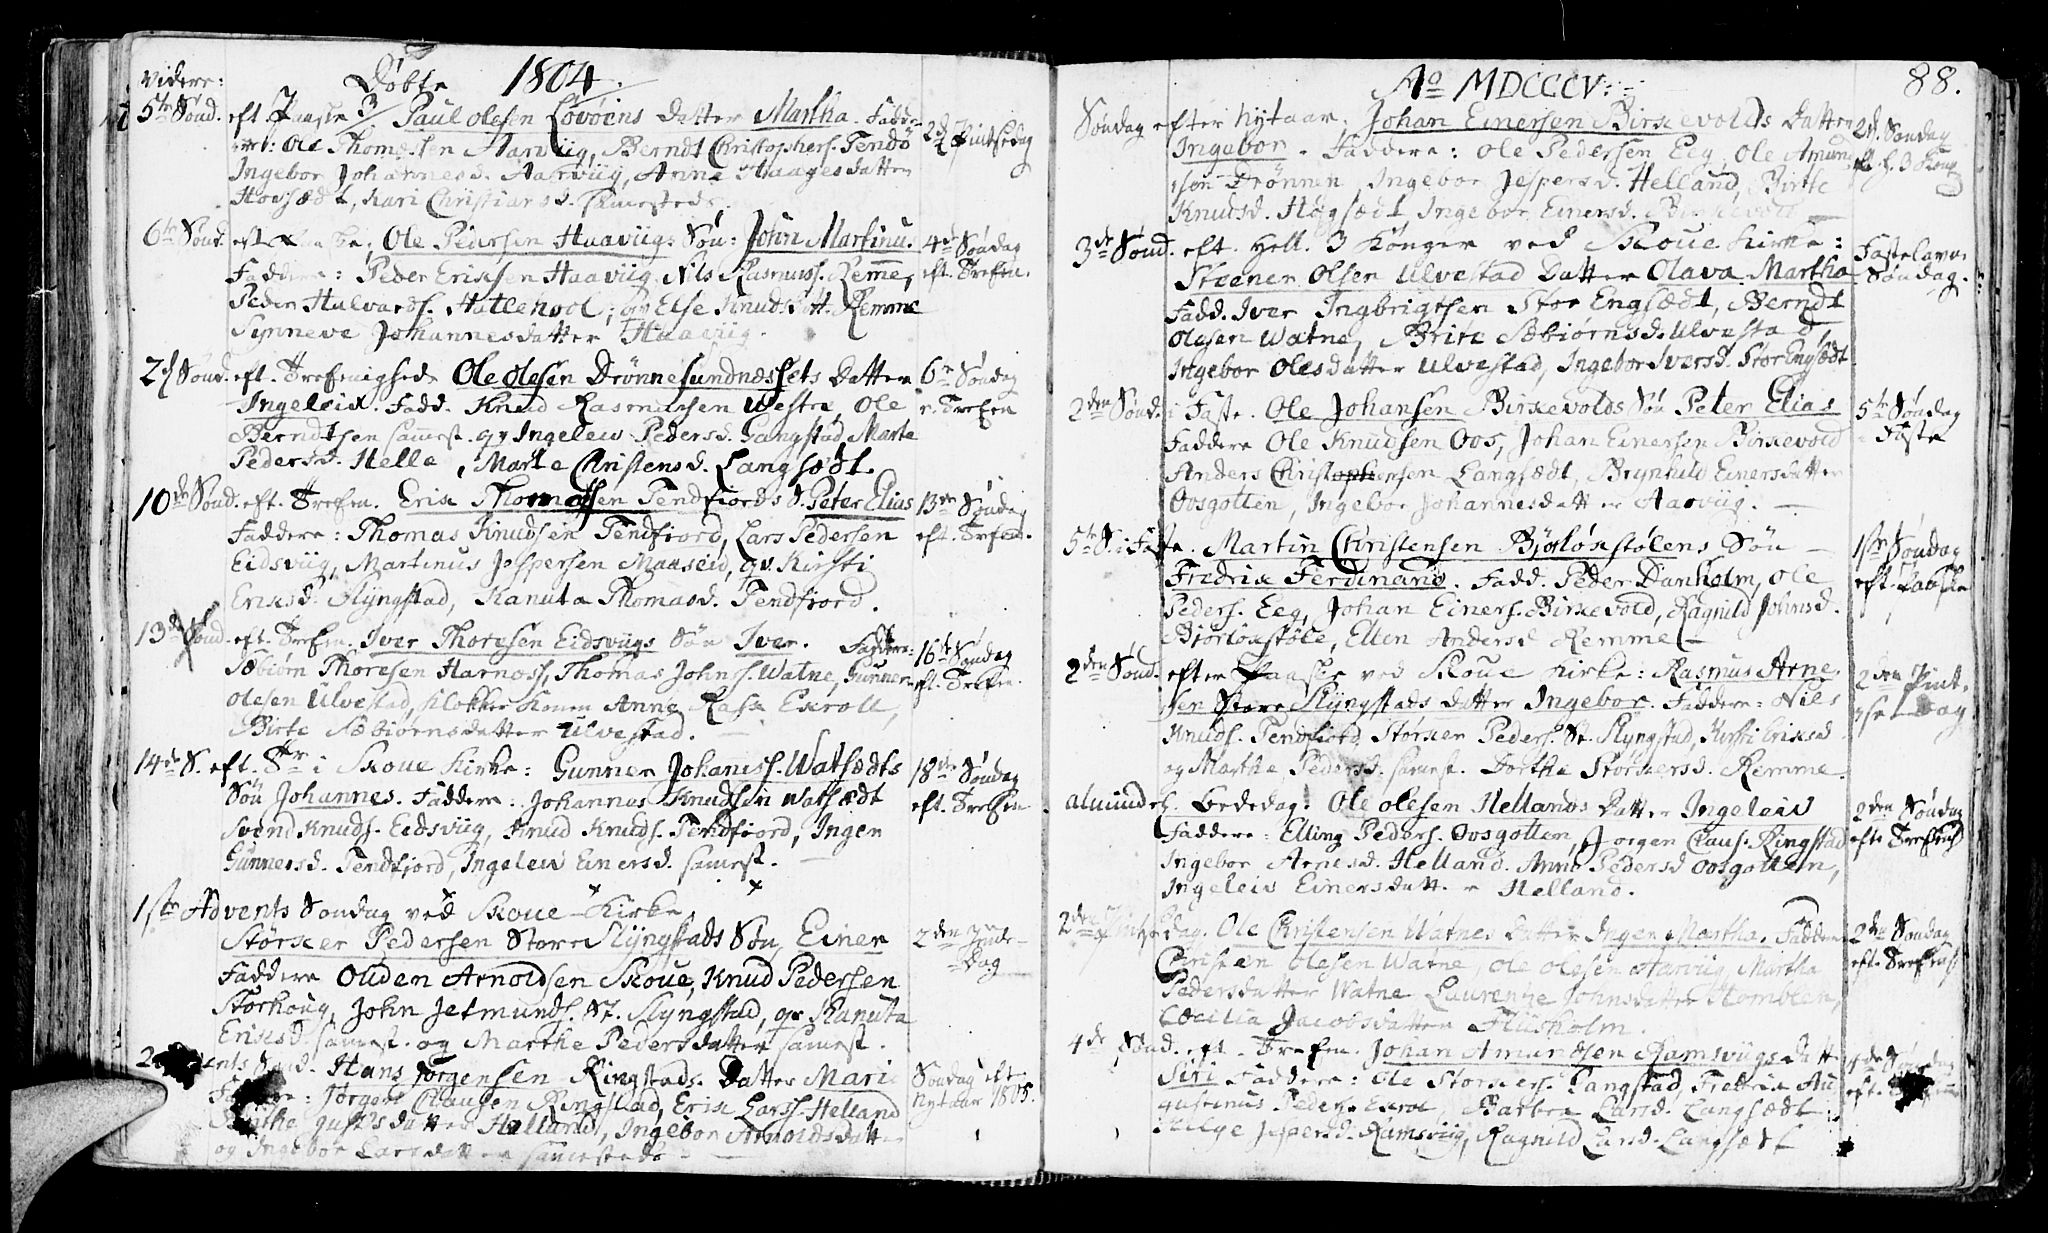 Videre: Døbte 1804.
5te Sønd. eft. Paaske Paul Olesen Lovøens Datter Martha. Fadde-
re: Ole Thomessen Aarviig, Berndt Christophers. Tendø
Ingebor Johannesd. Aarviig, Anne Haagesdatter
Hovsædt, Kari Christiansd. sammesteds.
2d Pintsedag
6te Sønd. Ole Pedersen Haaviigs Søn: John Martinus.
Faddere: Peder Erixsen Haaviig, Nils Rasmuss. Remme,
Peder Halvards. Hatlehool, qv Else Knudsdatt. Remme
Synneve Johannesdatter Haaviig.
4de Søndag
eft. Trefen.
2d Sønd. eft. Trefenigheds Ole Olesen Drønnesundnæssets Datter
Ingeleix. Fadd. Knud Rasmussen Westre, Ole
Berndtsen samest. qv Ingelew Pedersd. Gangstad, Marte
Pedersd. Helle, Marte Christensd. Langsædt.
6te Søndag
e. Trefen
10de Sønd. eft. Trefen. Erix Thomassen Tendfiords S. Peter Elias
Faddere: Thomas Knudsen Tendfiord, Lars Pedersen
Eidsviig, Martinus Jespersen Maaseid, qv. Kirsti
Erixsd. Slyngstad, Kanuta Thomasd. Tendfiord.
13de Søndag
eft. Trefen.
13de Sønd. eft. Trefen. Iver Thoresen Eidsviigs Søn Iver. Faddere:
Sæbiørn Thoresen Harnoss, Thomas Johns. Watne, Gunner
Olesen Ulvestad, Klokker Konen Anne Rask Exroll,
Birte Sæbiørnsdatter Ulvestad.
16de Søndag
eft. Trefen.
14de S. eft. Tr. i Skoue Kirke: Gunner Johaness. Watsædts
Søn Johannes. Faddere: Johannes Knudsen Watsædt
Svend Knuds. Eidsviig, Knud Knuds. Tendfiord, Inger
Gunnersd. Tendfiord, Ingelew Einersd. samest.
18de Søndag
eft. Trefen
1ste Advents Søndag ved Skoue Kirke
Størker Pedersen Store Slyngstads Søn, Einer
Faddere Ouden Arnoldsen Skoue, Knud Pedersen
Storhoug, John Jetmunds. St. Slyngstad, qv Kanuta
Erixsd. samest. og Marthe Pedersdatter samest.
2den Jule-
Dag
2 Advents Sønd. Hans Jørgensen Ringstads Datter Mari
Faddere: Jørgen Clausen Ringstad, Erix Larss. Helland
Helland, Ingebor Arnoldsdatter
og Ingebor Larsdatter sammesteds
Søndag eft.
Nytaar 1805.
Ao MDCCCV:
88.
Søndag efter Nytaar. Johan Einersen Birxevolds Datter
Ingebor. Faddere: Ole Pedersen Eeg, Ole Amun-
sen Drønnen, Ingebor Jespersd. Helland, Birte
Knudsd. Høgsædt, Ingebor Einersd. Birxevold
2d. Søndag
eft. H. 3 Kong
3de Sønd. eft. Hell. 3 Konger ved Skoue Kirke:
Steener Olsen Ulvestad Datter Olava Martha
Fadd. Iver Ingbrigtsen Stor Engsædt, Berndt
Olesen Watne, Brite Sæbiørnsd. Ulvestad,
Ingebor Olesdatter Ulvestad, Ingebor Iversd. Stor Engsædt
Fastelavns
Søndag.
2den Sønd. i Faste. Ole Johansen Birxevolds Søn Peter Elias
Faddere Ole Knudsen Oos, Johan Einersen Birxevold
Anders Christophersen Langsædt, Brynhild Einersdatter
Oosgotten, Ingebor Johannesdatter Aarviig.
5te Søndag
i Faste
5te S. i Faste. Martin Christensen Bjørløxstølens Søn
Fredrix Ferdinand. Fadd. Peder Danholm, Ole
Peders. Eeg, Johan Einers. Birxevold, Ragnild Johnsd.
Bjørløxstøle, Ellen Andersd Remme
1ste Søndag
eft. Paaske
2den Sønd. efter Paaske ved Skoue Kirke: Rasmus Arne-
sen Store Slyngstads datter Ingebor. Faddere: Nils
Knuds. Tendfiord, Størker Peders. St. Slyngstad, Kirsti Erixsd
og Marthe Pedersd. samest. Dorthe Storkersd. Remme.
2den Pint-
se Dag
Almindel. Bededag: Ole Olesen Hellands Datter Ingeleiv
Faddere: Elling Peders. Oosgotten, Jørgen Claus. Ringstad
Ingebor Arnesd. Helland. Anne Pedersd Oosgotten,
Ingeleiv Einersdatter Helland.
2den Søndag
efte Trefenigh
2den Pintsedag. Ole Christensen Watnes Datter Inger Martha. Faddere
Christen Olesen Watne, Ole Olesen Aarviig, Martha
Pedersdatter Watne Laurentze Johnsdatter Homblen,
Cæcilia Jacobsdatter Fliisholm.
2den Søndag
eft. Trefenigh
4de Sønd. eft. Trefen. Johan Amundsen Ramsviigs Datter
Siri Faddere: Ole Storxers. Gangstad, Fredrix Au-
gustinus Peders Exrol, Barbra Larsd. Langsædt
Helge Jespersd. Ramsviig, Ragnild Larsd. Langsædt
Søndag
eft.